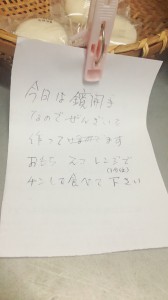 今日は鏡開き
なので ぜんざいを
作っています
おもち 2つ レンジで
(1分ほど)
チンして食べて下さい